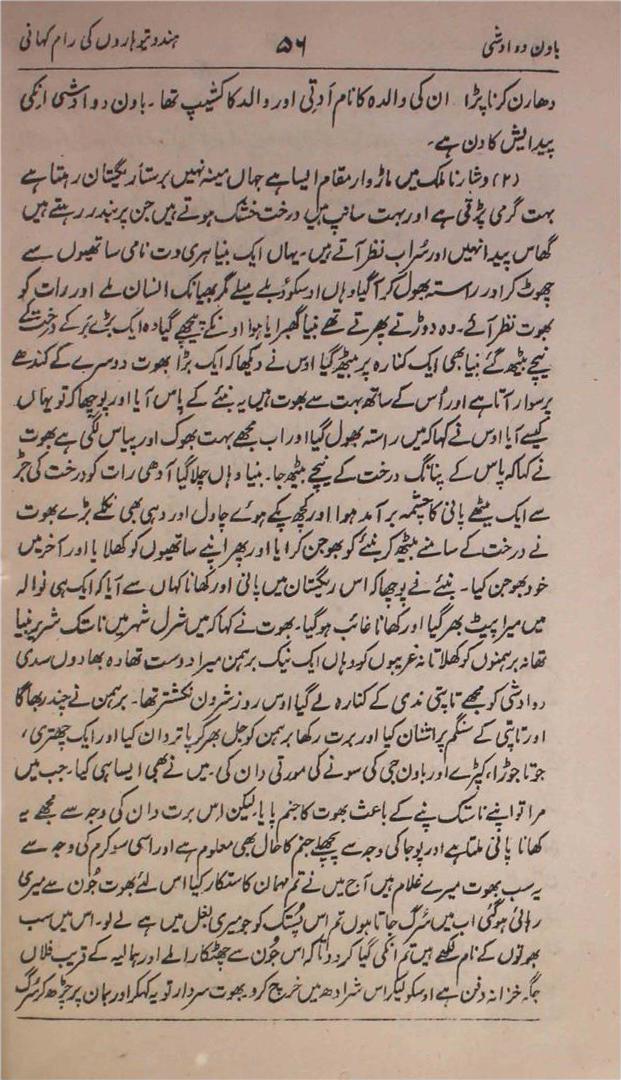 باون دوادشی ۵۶ ہندو تیوہاروں کی رام کہانی
دھارن کرنا پڑا ان کی والدہ کا نام اَدِتی اور والد کا کشیپ تھا۔ باون دوادشی انکی
پیدایش کا دن ہے۔
(۲) وشارنا ملک میں ماڑوار مقام ایسا ہے جہاں مینہ نہیں برستا ریگستان رہتا ہے
بہت گرمی پڑتی ہے اور بہت سانپ ہیں درخت خشک ہوتے ہیں جن پر بندر رہتے ہیں
گھاس پیدا نہیں اور سُراب نظر آتے ہیں۔ یہاں ایک بنیا ہری دت نامی ساتھیوں سے
چھوٹ کر اور راستہ بھول کر آگیا وہاں اوسکو ڈبلے میلے مگر بھیانک انسان ملے اور رات کو
بھوت نظر آئے۔ وہ دوڑتے پھرتے تھے بنیا گھبرایا ہوا اونکے پیچھے گیا وہ ایک بڑے بَر کے درخت کے
نیچے بیٹھ گئے بنیا بھی ایک کنارہ پر بیٹھ گیا اوس نے دیکھا کہ ایک بڑا بھوت دوسرے کے کندھے
پر سوار آتا ہے اور اُس کے ساتھ بہت سے بھوت ہیں یہ بنئے کے پاس آیا اور پوچھا کہ تو یہاں
کیسے آیا اوس نے کہا کہ میں راستہ بھول گیا اور اب مجھے بہت بھوک اور پیاس لگی ہے بھوت
نے کہا کہ پاس کے درخت کے نیچے بیٹھ جا۔ بنیا وہاں چلا گیا آدھی رات کو درخت کی جڑ
سے ایک میٹھے پانی کا چشمہ برآمد ہوا اور کچھ پکے ہوئے چاول اور دہی بھی نکلے بڑے بھوت
نے درخت کے سامنے بیٹھ کر بنئے کو بھوجن کرایا اور پھر اپنے ساتھیوں کو کھلایا اور آخر میں
خود بھوجن کیا۔ بنئے نے پوچھا کہ اس ریگستان میں پانی اور کھانا کہاں سے آیا کہ ایک ہی نوالہ
میں میرا پیٹ بھر گیا اور کھانا غائب ہوگیا۔ بھوت نے کہا کہ میں شرل شہر میں ناستک شریر بنیا
تھا نہ برہمنوں کو کھلاتا نہ غریبوں کو وہاں ایک نیک برہمن میرا دوست تھا وہ بھادوں سدی
دوادشی کو مجھے تاپتی ندی کے کنارہ لے گیا اوس روز شرون نکشتر تھا۔ برہمن نے چندر بھاگا
اور تاپتی کے سنگم پر اشنان کیا اور برت رکھا برہمن کو جل بھر کر پاتر دان کیا اور ایک چھتری،
جوتا جوڑا، کپڑے اور باون جی کی سونے کی مورتی دان کی۔ میں نے بھی ایسا ہی کیا۔ جب میں
مرا تو اپنے ناستک پنے کے باعث بھوت کا جنم پایا لیکن اس برت دان کی وجہ سے مجھے یہ
کھانا پانی ملتا ہے اور پوجا کی وجہ سے پچھلے جنم کا حال بھی معلوم ہے اور اسی سوکرم کی وجہ سے
یہ سب بھوت میرے غلام ہیں آج میں نے تم مہمان کا ستکار کیا اس لئے بھوت جُون سے میری
رہائی ہوگئی اب میں سُرگ جاتا ہوں تم اس پُستک کو جو میری بغل میں ہے لے لو۔ اس میں سب
بھوتوں کے نام لکھے ہیں تم انکی گیا کردو تاکہ اس جُون سے چھٹکارا لے اور ہمالیہ کے قریب فلاں
جگہ خزانہ دفن ہے اوسکو لیکر اس شرادھ میں خرچ کرو بھوت سردار تو یہ کہکر اور بمان پر چڑھ کر سُرگ